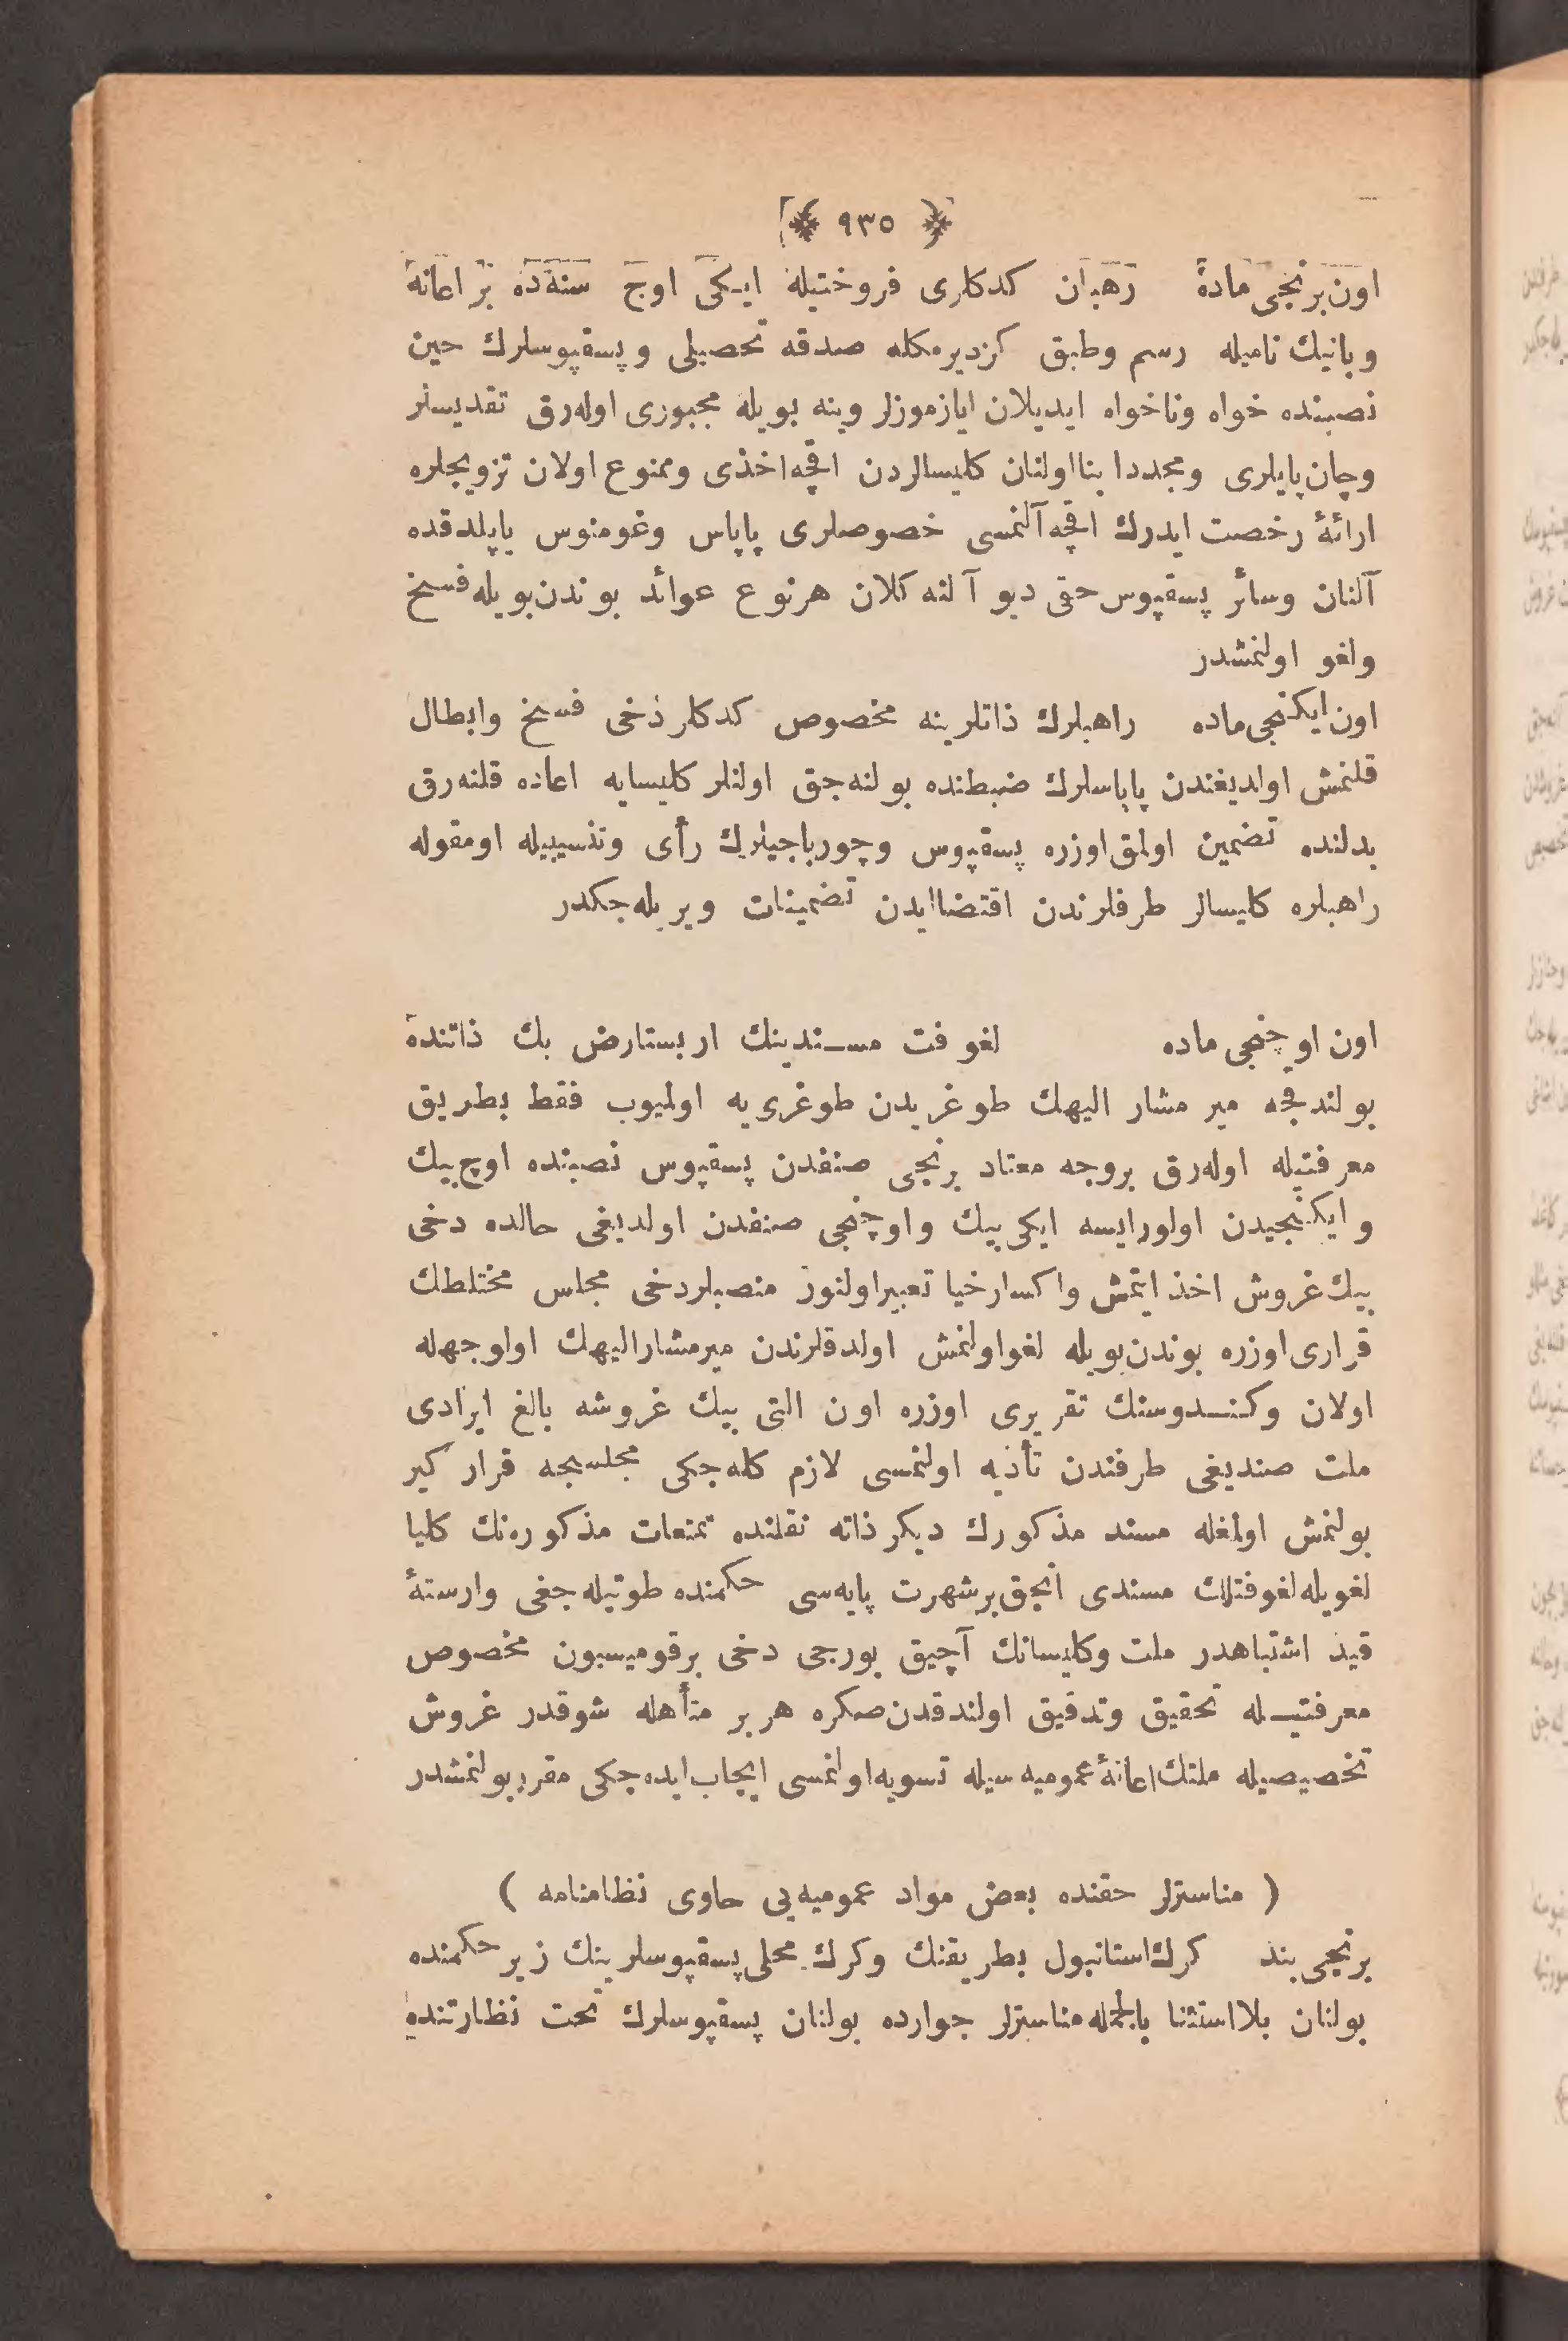 ﴿ ٩٣٥ ﴾
اون برنجی ماده رهبان كدكاری فروختیله ایكی اوچ سنه‌ده بر اعانه
وبانیك نامیله رسم وطبق كزدیرمكله صدقه تحصیلی وپسقپوسلرك حین
نصبنده خواه وناخواه ایدیلان ایازموزلر وینه بویله مجبوری اوله‌رق تقدیسلر
وچان پایلری ومجددا بنا اولنان كلیسالردن اقچه اخذی وممنوع اولان تزویجلره
ارائهٔ رخصت ایدرك اقچه آلنمسی خصوصلری پاپاس وغومنوس یاپلدقده
آلنان وسائر پسقپوس حقی دیو آلنه كلان هرنوع عوائد بوندن بویله فسخ
ولغو اولنمشدر
اون ایكنجی ماده راهبلرك ذاتلرینه مخصوص كدكلر دخی فسخ وابطال
قلنمش اولدیغندن پاپاسلرك ضبطنده بولنه‌جق اولنلر كلیسایه اعاده قلنه‌رق
بدلنده تضمین اولمق اوزره پسقپوس وچورباجیلرك رأی وتنسیبیله اومقوله
راهبلره كلیسالر طرفلرندن اقتضا ایدن تضمینات ویریله‌جكدر
اون اوچنجی ماده لغوفت مسندینك اربستارض بك ذاتنده
بولندقجه میر مشار الیهك طوغریدن طوغری‌یه اولمیوب فقط بطریق
معرفتیله اوله‌رق بروجه معتاد برنجی صنفدن پسقپوس نصبنده اوچ بیك
وایكنجیدن اولور ایسه ایكی بیك واوچنجی صنفدن اولدیغی حالده دخی
بیك غروش اخذ ایتمش واكسارخیا تعبیر اولنور منصبلردخی مجلس مختلطك
قراری اوزره بوندن بویله لغو اولنمش اولدقلرندن میرمشار الیهك اولوجهله
اولان وكندوسنك تقریری اوزره اون التی بیك غروشه بالغ ایرادی
ملت صندیغی طرفندن تأدیه اولنمسی لازم كله‌جكی مجلسجه قرار كیر
بولنمش اولمغله مسند مذكورك دیكر ذاته نقلنده تمتعات مذكوره‌نك كلیا
لغویله لغوفتلك مسندی انجق برشهرت پایه‌سی حكمنده طوتیله‌جغی وارستهٔ
قید اشتباهدر ملت وكلیسانك آچیق بورجی دخی برقومیسیون مخصوص
معرفتیله تحقیق وتدقیق اولندقدن صكره هر بر متأهله شوقدر غروش
تخصیصیله ملتك اعانهٔ عمومیه‌سیله تسویه اولنمسی ایجاب ایده‌جكی مقرر بولنمشدر
( مناسترلر حقنده بعض مواد عمومیه‌یی حاوی نظامنامه )
برنجی بند كرك استانبول بطریقنك وكرك محلی پسقپوسلرینك زیر حكمنده
بولنان بلا استثنا بالجمله مناسترلر جوارده بولنان پسقپوسلرك تحت نظارتنده